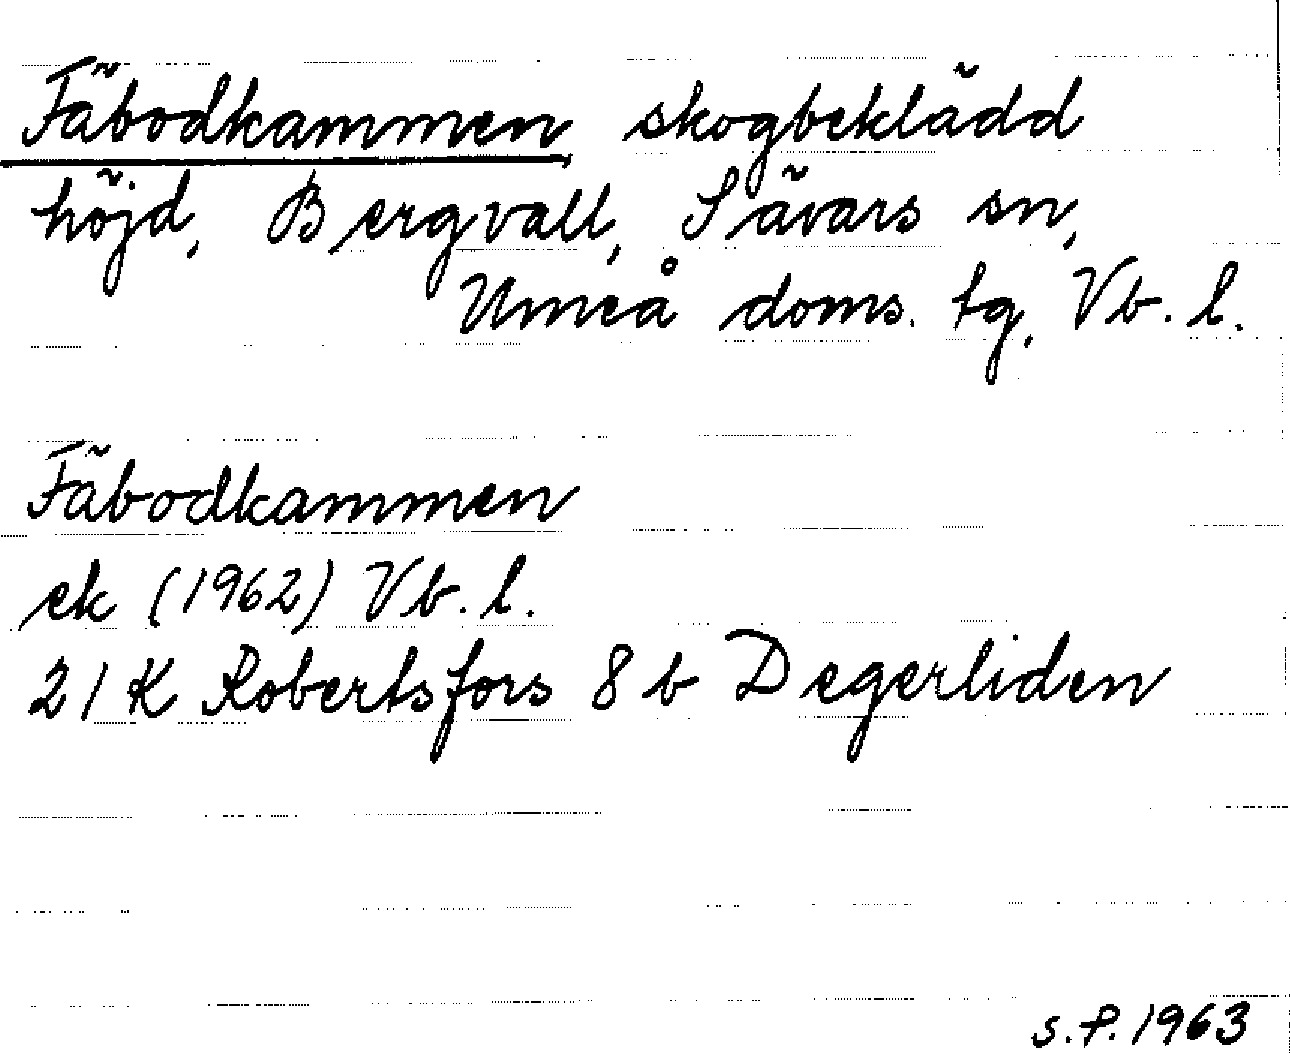 Fäbodkammen skogbeklädd
höjd, Bergvall, Sävars sn,
Umeå doms. tg, Vb. l.
Fäbodkammen
ek (1962) Vb. l.
21 K Robertsfors 8 b Degerliden
s.P. 1963